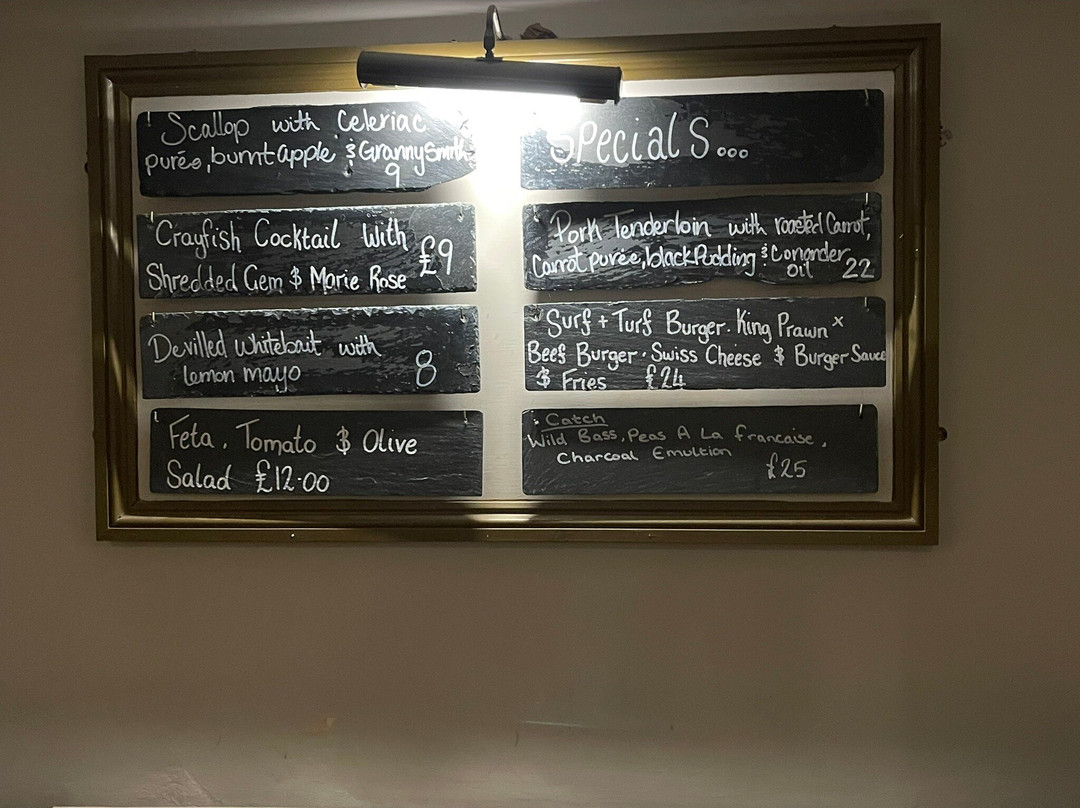 Scallop with Celeriac
purée, burnt apple & Granny Smith
9
Crayfish Cocktail With
Shredded Gem & Marie Rose £9
Devilled Whitebait with
lemon mayo 8
Feta, Tomato & Olive
Salad £12.00
Specials...
Pork Tenderloin with roasted Carrot,
Carrot purée, black Pudding & Coriander
oil 22
Surf + Turf Burger. King Prawn x
Beef Burger. Swiss Cheese & Burger Sauce
& Fries £24
Catch
Wild Bass, Peas A La francaise,
Charcoal Emultion
£25